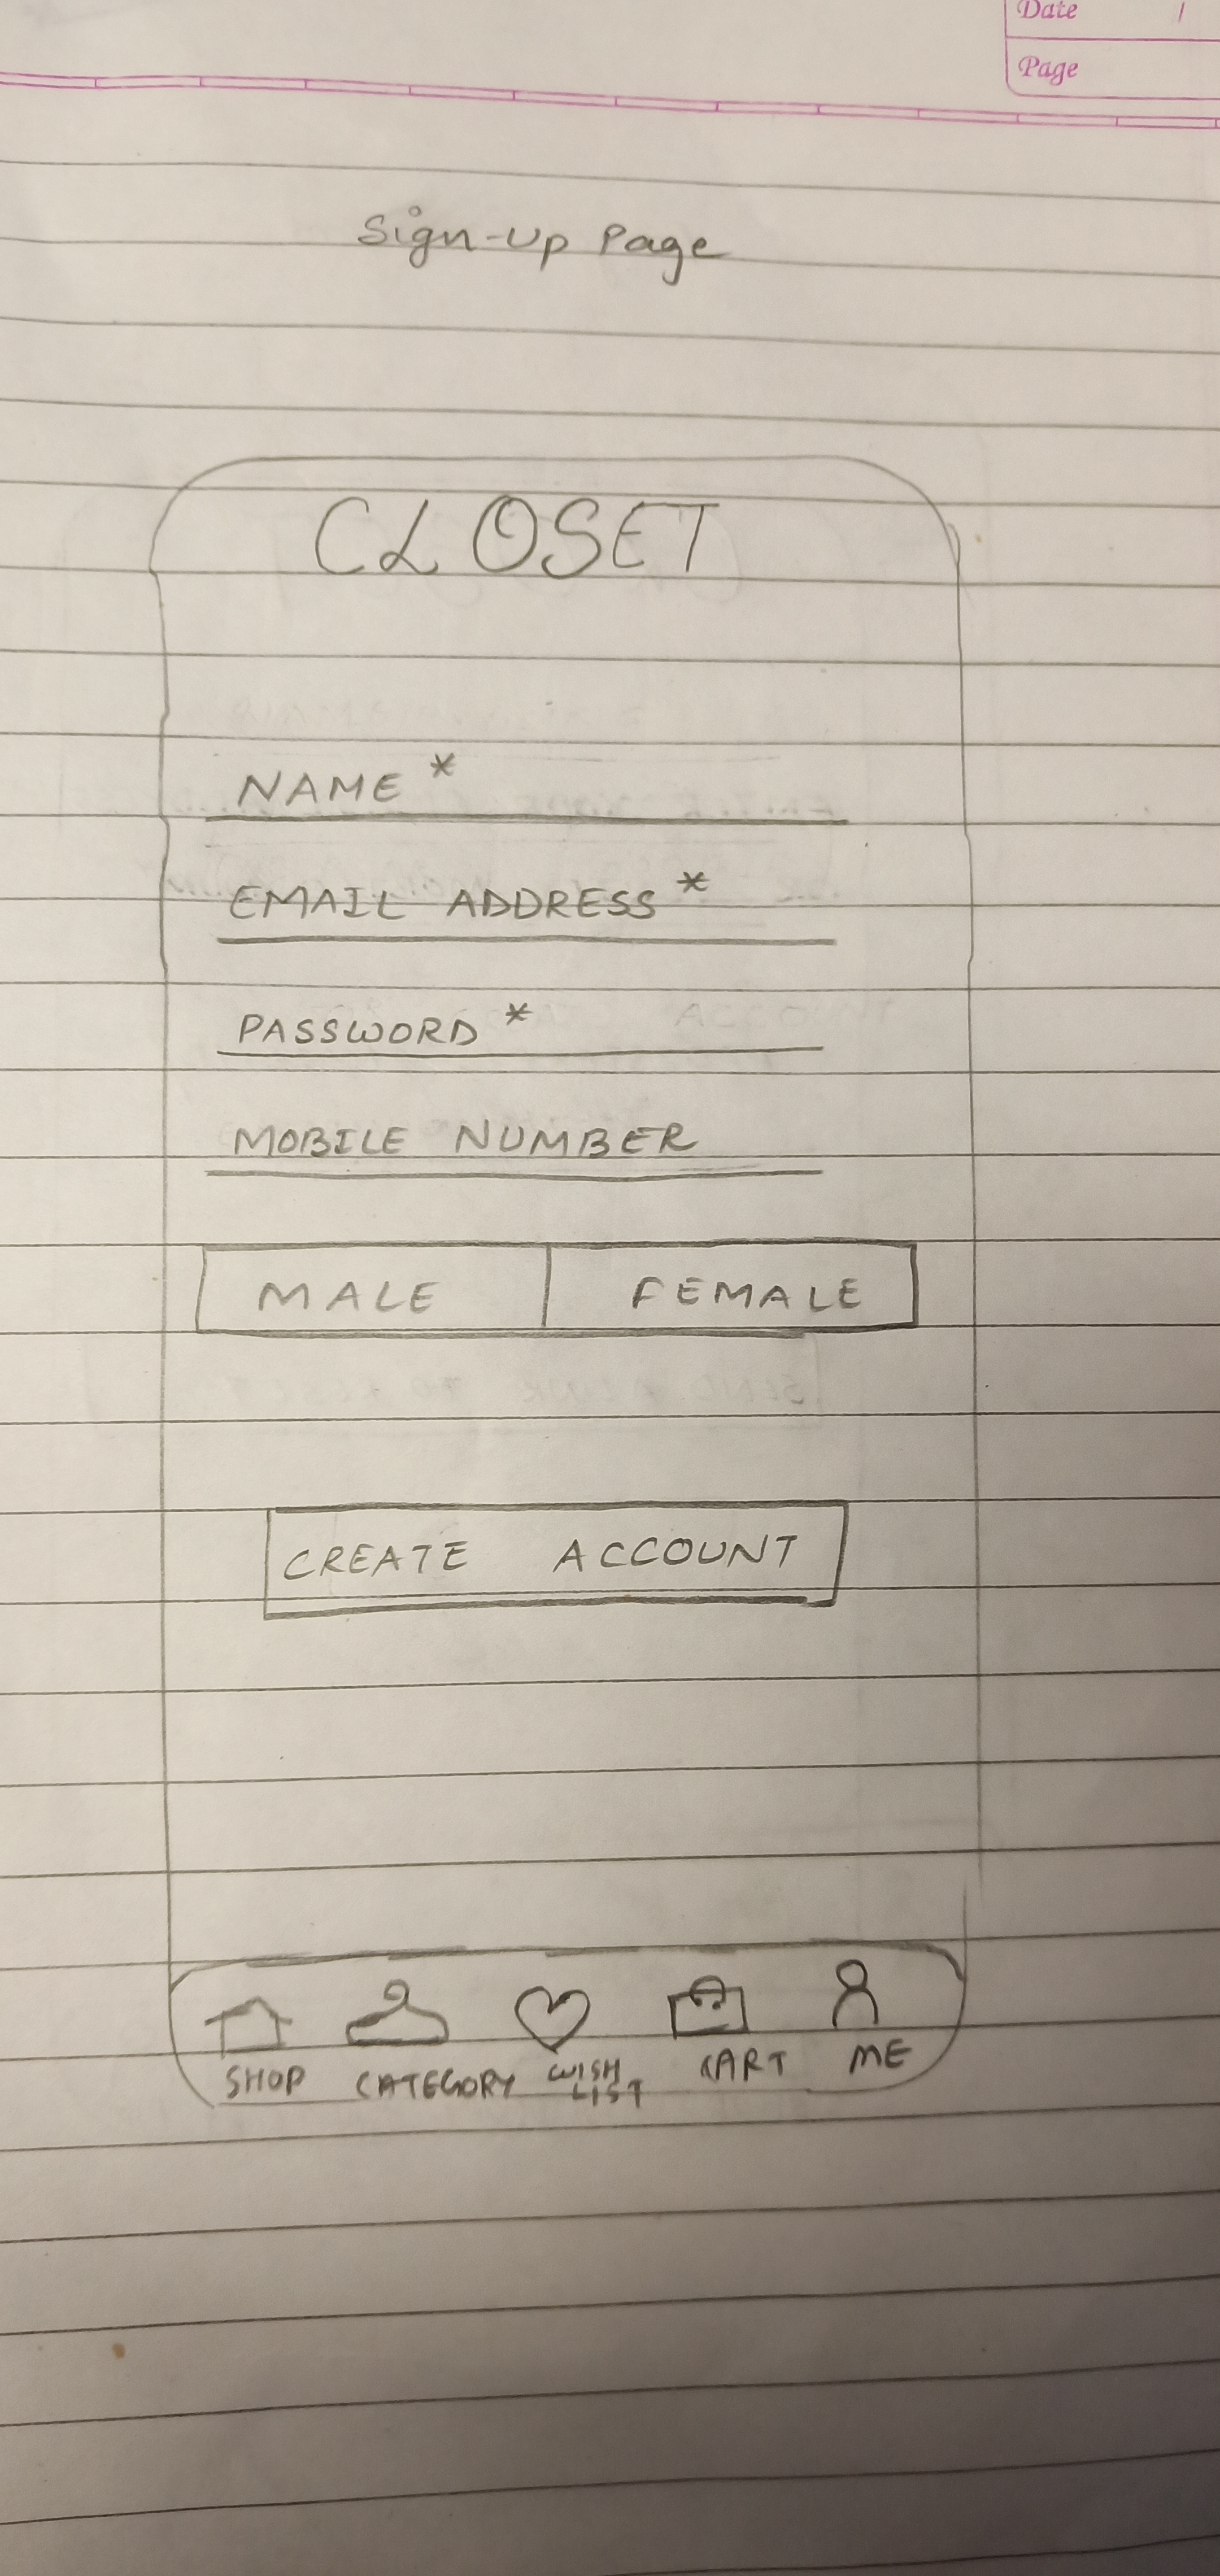 Date /
Page
Sign-Up Page
CLOSET
NAME *
EMAIL ADDRESS *
PASSWORD *
MOBILE NUMBER
MALE FEMALE
CREATE ACCOUNT
SHOP CATEGORY WISH LIST CART ME